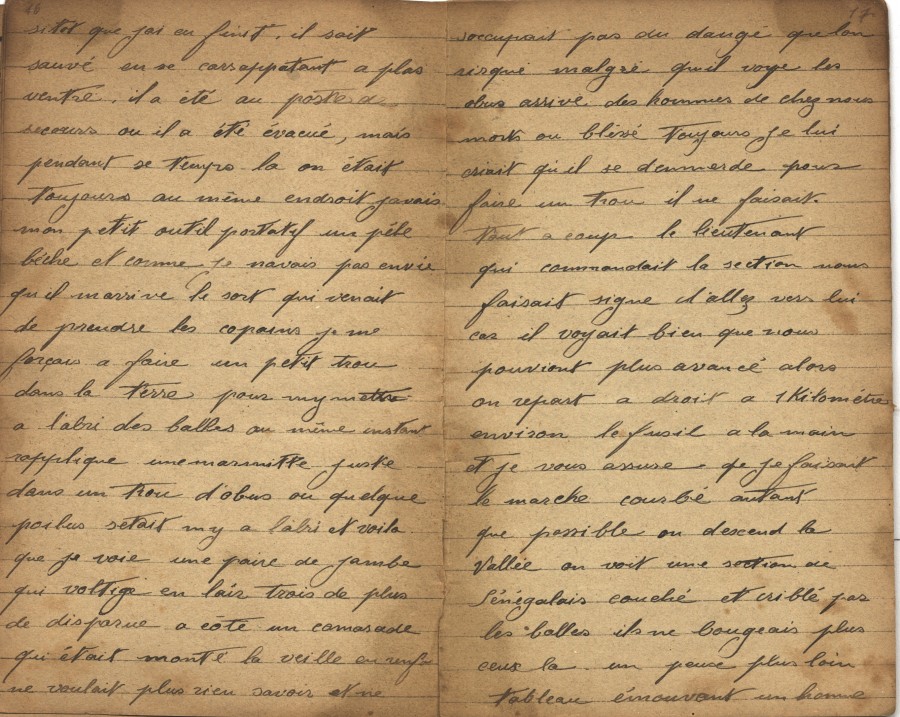 16
sitot que jai eu finit, il sait
sauvé en se carrappatant a plas
ventre, il a été au poste de
secours ou il a été évacué, mais
pendant se temps la on était
toujours au même endroit javais
mon petit outil portatif un péle
bêche et comme je navais pas envie
qu'il marrive le sort qui venait
de prendre les copains je me
forçais a faire un petit trou
dans la terre pour my mettre
a l'abri des balles au même instant
rapplique une marmitte juste
dans un trou d'obus ou quelque
poilus sétait my a labri et voila
que je voie une paire de jambe
qui voltige en lair trois de plus
de disparue a côté un camarade
qui était monté la veille en renfor
ne voulait plus rien savoir et ne
17
soccupait pas du dangé que lon
risqué malgré qu'il voye les
obus arrivé. des hommes de chez nous
morts ou bléssé toujours je lui
criait qu'il se demmerde pour
faire un trou il ne faisait.
tout a coup le lieutenant
qui commandait la section nous
faisait signe d'allez vers lui
car il voyait bien que nous
pouviont plus avancé alors
on repart a droit a 1 Kilométre
environ le fusil a la main
et je vous assure que je faisait
le marche courbé autant
que possible on descend la
Vallée on voit une section de
Sénégalais couché et criblé par
les balles ils ne bougeais plus
ceux la. un peux plus loin
tableau émouvant un homme